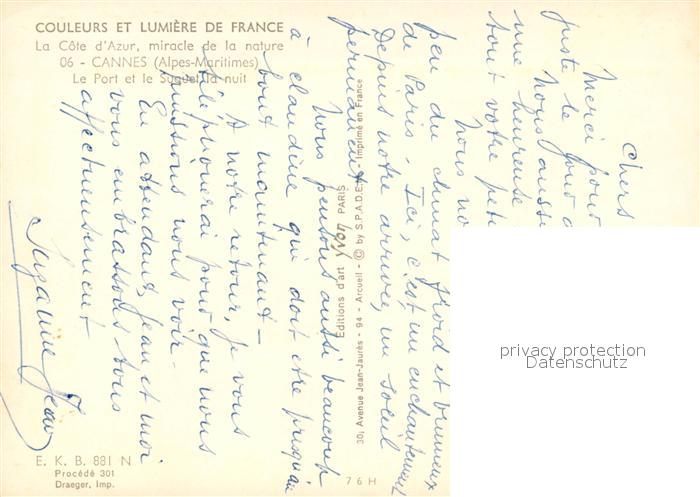 COULEURS ET LUMIÈRE DE FRANCE
La Côte d'Azur, miracle de la nature
06 - CANNES (Alpes-Maritimes)
Le Port et le Suquet la nuit
Chers
Merci pour
juste le jour d
Nous aussi
une heureuse
tout votre pet
Nous no
peu du climat froid et brumeux
de Paris. Ici, c'est un enchantement
Depuis notre arrivée, un soleil
permanent
Nous pensons aussi beaucoup
à Claudine qui doit être presqu'au
bout maintenant -
A notre retour, je vous
téléphonerai pour que nous
puissions nous voir -
En attendant, Jean et moi
vous embrassons tous
affectueusement
Suzanne Jean
Editions d'art yvon PARIS
30, Avenue Jean-Jaurès - 94 - Arcueil - © by S.P.A.D.E.M. - Imprimé en France
privacy protection
Datenschutz
E. K. B. 881 N
Procédé 301
Draeger, Imp.
76 H